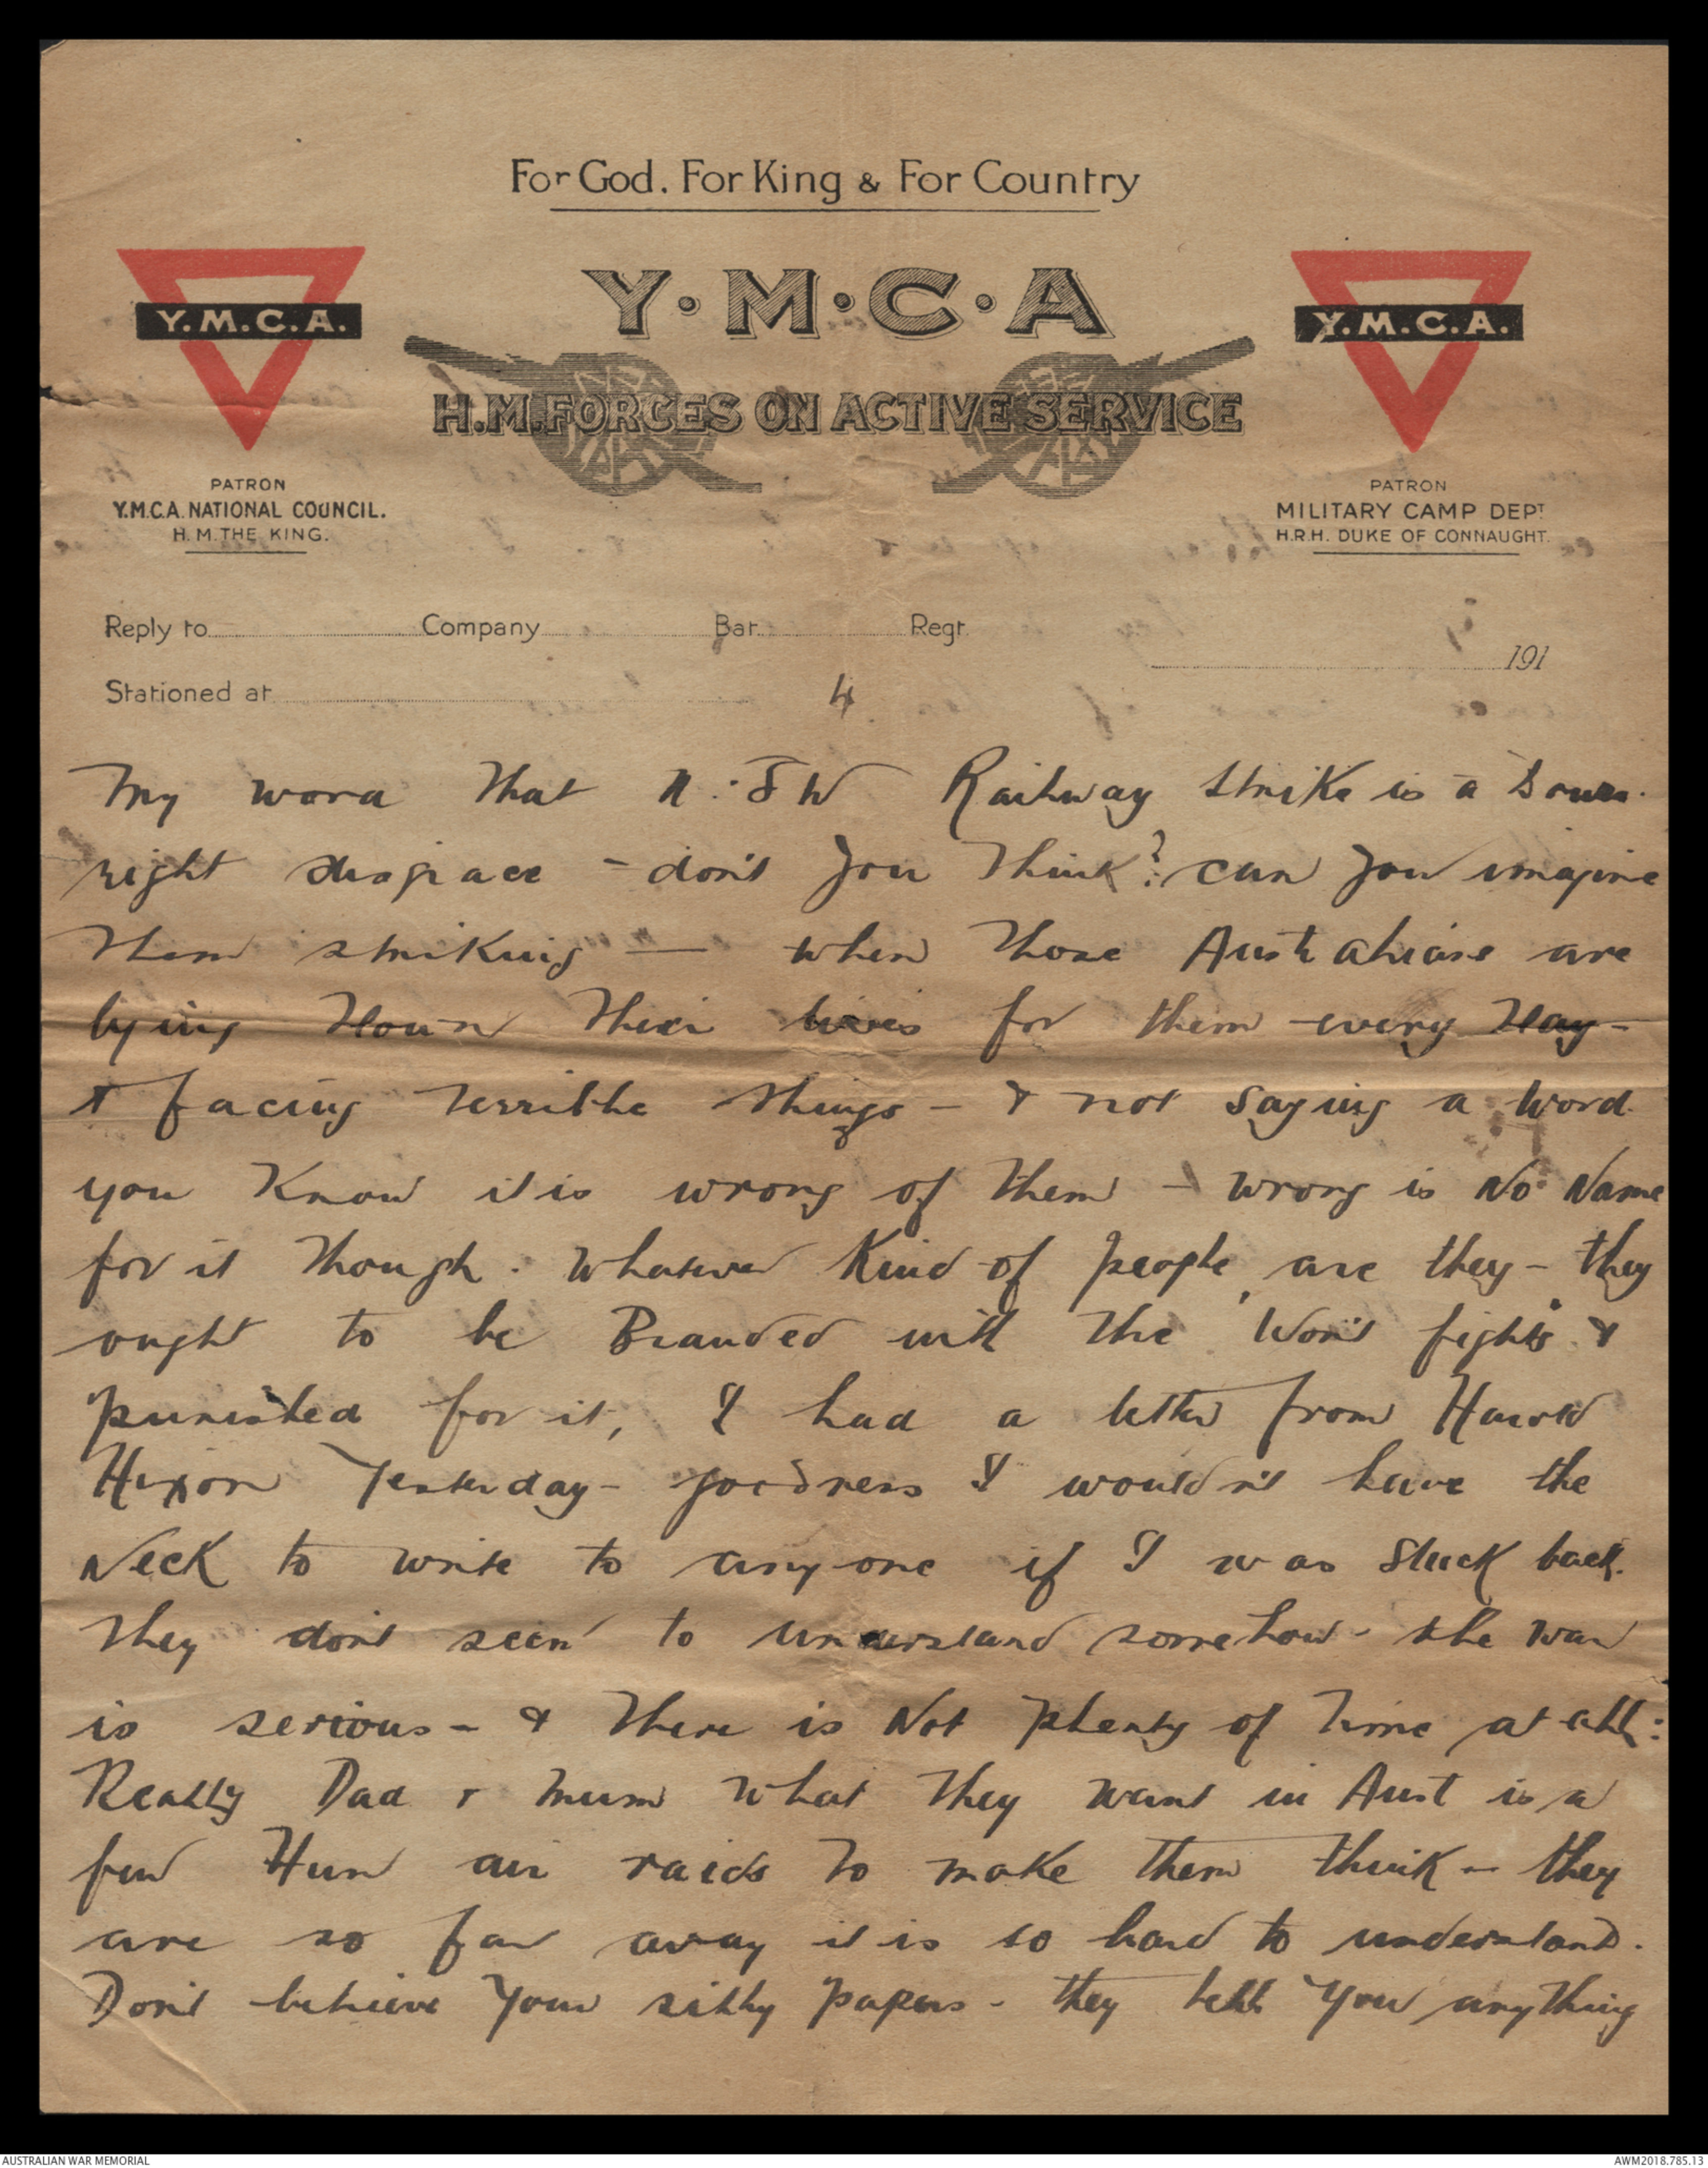 For God. For King & For Country
Y·M·C·A
H.M. FORCES ON ACTIVE SERVICE
Y.M.C.A.
Y.M.C.A.
PATRON
Y.M.C.A. NATIONAL COUNCIL.
H.M. THE KING.
PATRON
MILITARY CAMP DEPT
H.R.H. DUKE OF CONNAUGHT.
Reply to Company Bat. Regt.
191
Stationed at
4
My word that N.SW Railway strike is a down-
right disgrace - don't you think? can you imagine
them striking — when those Australians are
lying down their lives for them every day -
& facing terrible things - & not saying a word
you know it is wrong of them - wrong is No Name
for it though. Whatever kind of people are they - they
ought to be Branded with the 'Won't fights' &
punished for it, I had a letter from Harold
Hixon Yesterday - goodness I wouldn't have the
Neck to write to any one if I was stuck back.
They don't seem to understand somehow - the war
is serious - & there is Not plenty of time at all:
Really Dad & Mum what they want in Aust is a
few Hun air raids to make them think - they
are so far away it is so hard to understand.
Don't believe your silly papers - they tell you anything
AUSTRALIAN WAR MEMORIAL
AWM2018.785.13